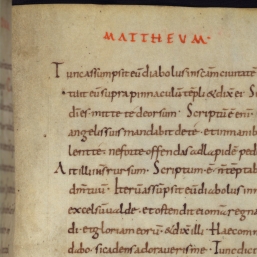 MATTHEUM·
Tunc assumpsit eu diabolus in scam ciuitate
tuit eu supra pinnaculu templi & dix ei Si
di es mitte te deorsum· Scriptu e eni
angelis suis mandabit de te· et in manib
lent te ne forte offendas ad lapide ped
Ait illi ihs rursum· Scriptum e· n teptab
dnm tuu· Iteru assupsit eu diabolus in
excelsu ualde· et ostendit ei omia regna
di· et gloriam eoru· & dix illi· Haec omn
dabo si cadens adoraueris me· Tunc dicit